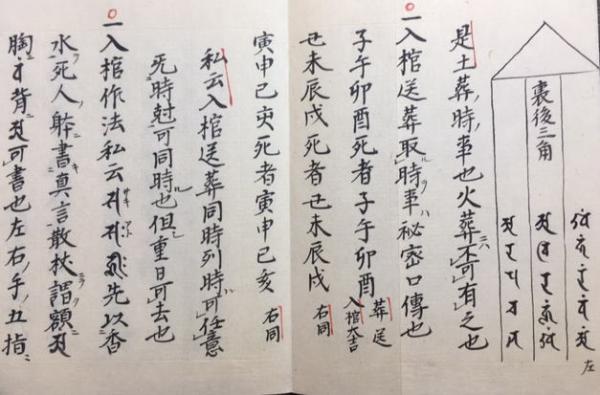 左
裏後三角
是土葬ノ時ノ事也火葬ニハ不可有之也
一入棺送葬取時ノ事ハ秘密口傳也
子午卯酉死者子午卯酉 葬送入棺大吉
丑未辰戌死者丑未辰戌 右同
寅申巳亥死者寅申巳亥 右同
私云入棺送葬同時列時可任意
死時尅可同時也但重日可去也
一入棺作法私云 先以香
水死人躰書真言散杖謂額
胸ニ 背ニ 可書也左右ノ手ノ五指ニ